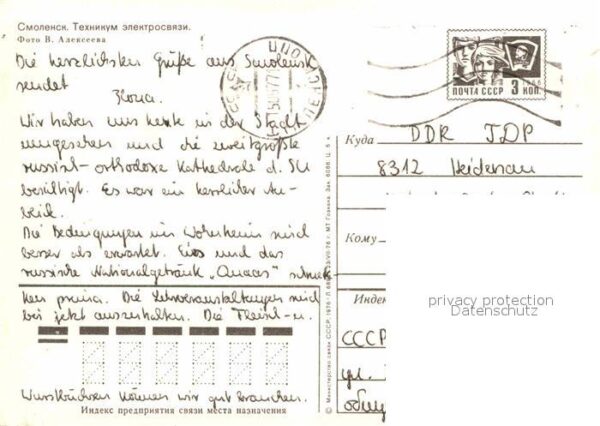 Смоленск. Техникум электросвязи.
Фото В. Алексеева
Die herzlichsten Grüße aus Smolensk
sendet
Ilona.
Wir haben uns heute in der Stadt
umgesehen und die zweitgrößte
russisch-orthodoxe Kathedrale d. SU
besichtigt. Es war ein herrlicher An-
blick.
Die Bedingungen im Wohnheim sind
besser als erwartet. Eis und das
russische Nationalgetränk „Quaas" schmek-
ken prima. Die Lehrveranstaltungen sind
bis jetzt auszuhalten. Die Fleisch- u.
Wurstbüchsen können wir gut brauchen.
Индекс предприятия связи места назначения
© Министерство связи СССР, 1976
МТ Гознака.
ПОЧТА СССР 3 КОП.
1966
Куда DDR TDP
8312 Heidenau
Кому
Индекс
СССР
ул.
общ
privacy protection
Datenschutz